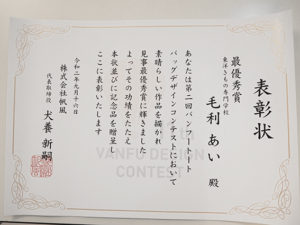 表彰状
最優秀賞
東洋きもの専門学校
毛利 あい 殿
あなたは第二回バンフートート
バッグデザインコンテストにおいて
素晴らしい作品を描かれ
見事最優秀賞に輝きました
よってその功績をたたえ
本状並びに記念品を贈呈し
ここに表彰いたします
令和二年九月十六日
株式会社帆風
代表取締役 犬養 新嗣
VANFU DESIGN
CONTEST